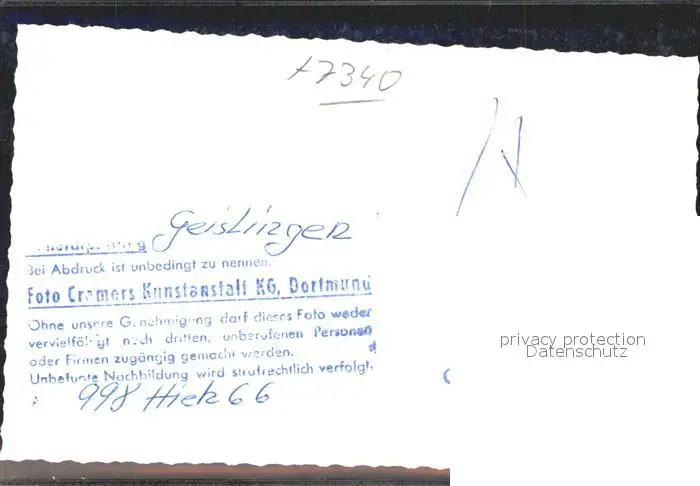 7340
Geislingen
Bei Abdruck ist unbedingt zu nennen.
Foto Cramers Kunstanstalt KG, Dortmund
Ohne unsere Genehmigung darf dieses Foto weder
vervielfältigt noch dritten, unberufenen Personen
oder Firmen zugängig gemacht werden.
Unbefugte Nachbildung wird strafrechtlich verfolgt.
998 66
privacy protection
Datenschutz